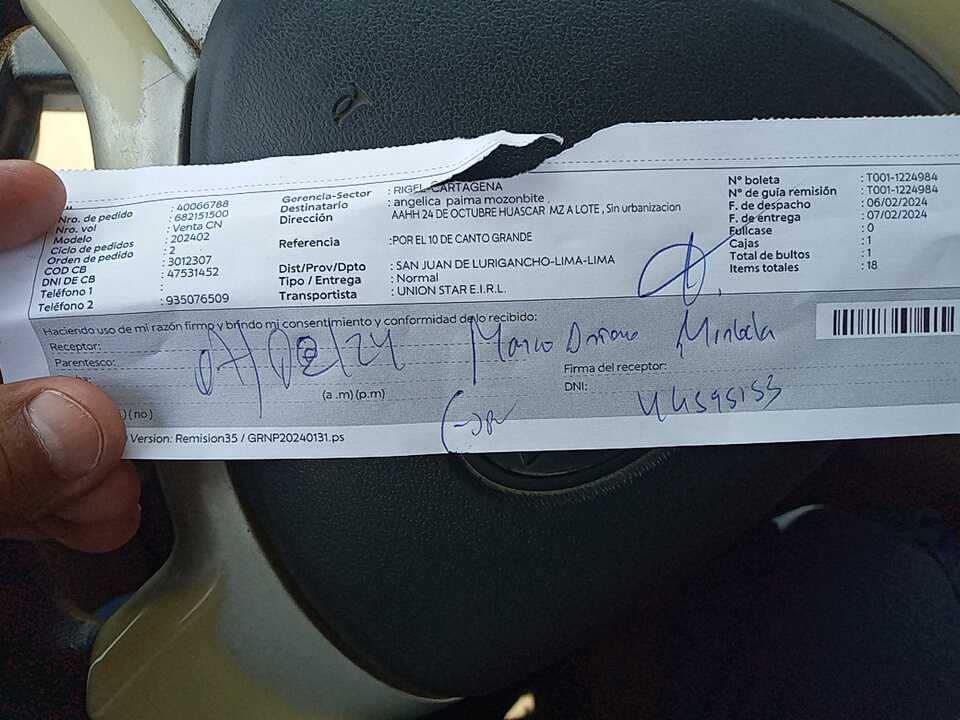 Nro. de pedido : 40066788
Nro. vol : 682151500
Modelo : Venta CN
Ciclo de pedidos : 202402
Orden de pedido : 2
COD CB : 3012307
DNI DE CB : 47531452
Teléfono 1 :
Teléfono 2 : 935076509
Gerencia-Sector : RIGEL-CARTAGENA
Destinatario : angelica paima mozonbite
Dirección AAHH 24 DE OCTUBRE HUASCAR MZ A LOTE , Sin urbanizacion
Referencia :POR EL 10 DE CANTO GRANDE
Dist/Prov/Dpto : SAN JUAN DE LURIGANCHO-LIMA-LIMA
Tipo / Entrega : Normal
Transportista : UNION STAR E.I.R.L.
N° boleta : T001-1224984
N° de guía remisión : T001-1224984
F. de despacho : 06/02/2024
F. de entrega : 07/02/2024
Fullcase : 0
Cajas : 1
Total de bultos : 1
Items totales : 18
Haciendo uso de mi razón firmo y brindo mi consentimiento y conformidad de lo recibido:
Receptor: Marco
Parentesco:
07/02/24
(a .m) (p.m)
Firma del receptor:
DNI: 44595153
) (no)
Version: Remision35 / GRNP20240131.ps